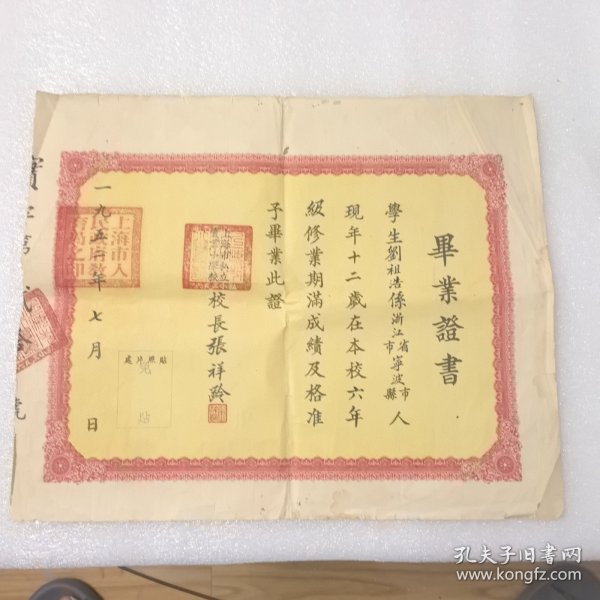 畢業證書
學生劉祖浩係浙江省市寧波市縣人
現年十二歲在本校六年
級修業期滿成績及格准
予畢業此證
校長張祥齡
貼照片處
免貼
上海市人民政府教育局之印
一九五 年七月 日
字第 號
孔夫子旧书网
www.kongfz.com